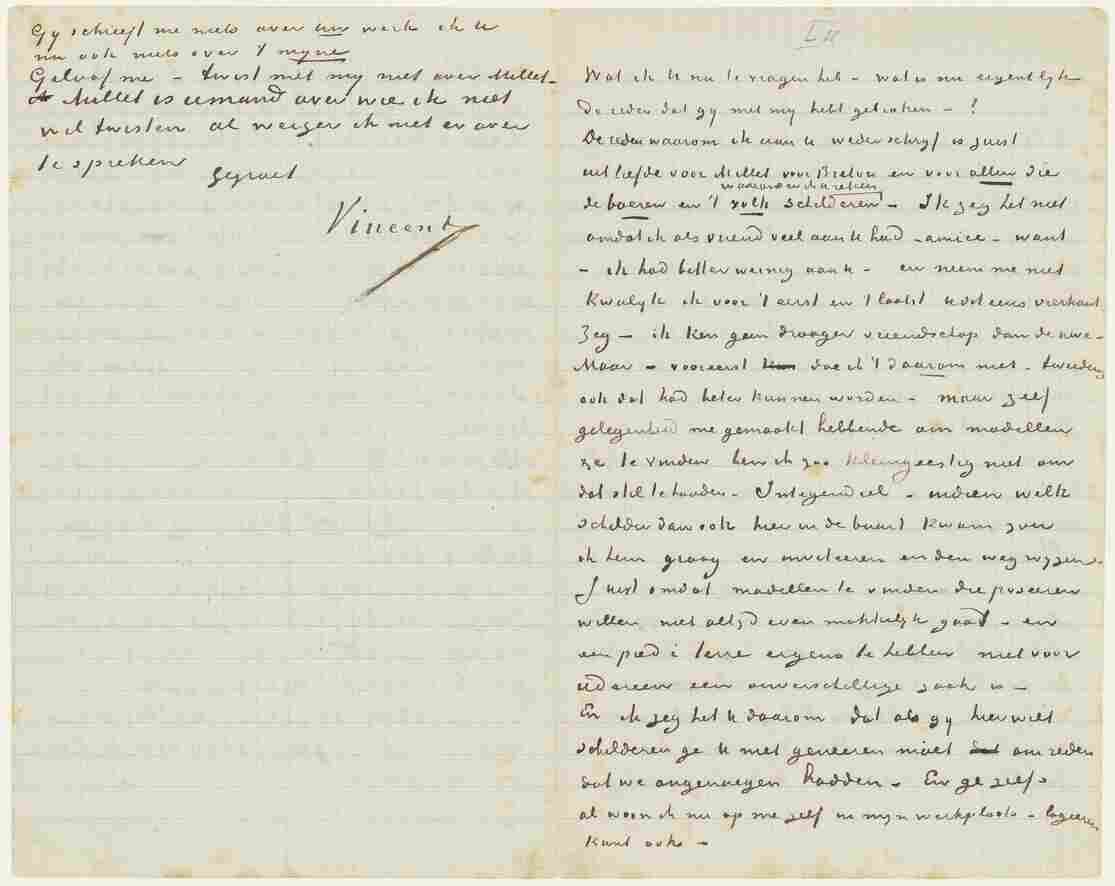 Gy schreeft me niets over uw werk ik u
nu ook niets over 't myne
Geloof me – twist met my niet over Millet –
Millet is iemand over wie ik niet
wil twisten al weiger ik niet er over
te spreken
gegroet
Vincent
Wat ik U nu te vragen heb – wat is nu eigentlyk
de reden dat gy met my hebt gebroken – ?
De reden waarom ik aan U weder schryf is juist
uit liefde voor Millet voor Breton en voor allen die
waaronder ik U reken
de boeren en 't volk schilderen – Ik zeg het niet
omdat ik als vriend veel aan U had – amice – want
– ik had bitter weinig aan U – en neem me niet
kwalyk ik voor 't eerst en 't laatst U dat eens vierkant
zeg – ik ken geen drooger vriendschap dan de uwe –
Maar – vooreerst doe ik 't daarom niet – tweedens
ook dat had beter kunnen worden – maar zelf
gelegenheid me gemaakt hebbende om modellen
te vinden ben ik zoo kleingeestig niet om
dat stil te houden – Integendeel – indien welk
schilder dan ook hier in de buurt kwam zou
ik hem graag en inviteeren en den weg wyzen –
Juist omdat modellen te vinden die poseeren
willen niet altyd even makkelyk gaat – en
een pied à terre ergens te hebben niet voor
iedereen een onverschillige zaak is –
En ik zeg het U daarom dat als gy hier wilt
schilderen ge U niet geneeren moet om reden
dat we ongenoegen hadden – En ge zelfs
al woon ik nu op me zelf in myn werkplaats – logeeren
kunt ook –